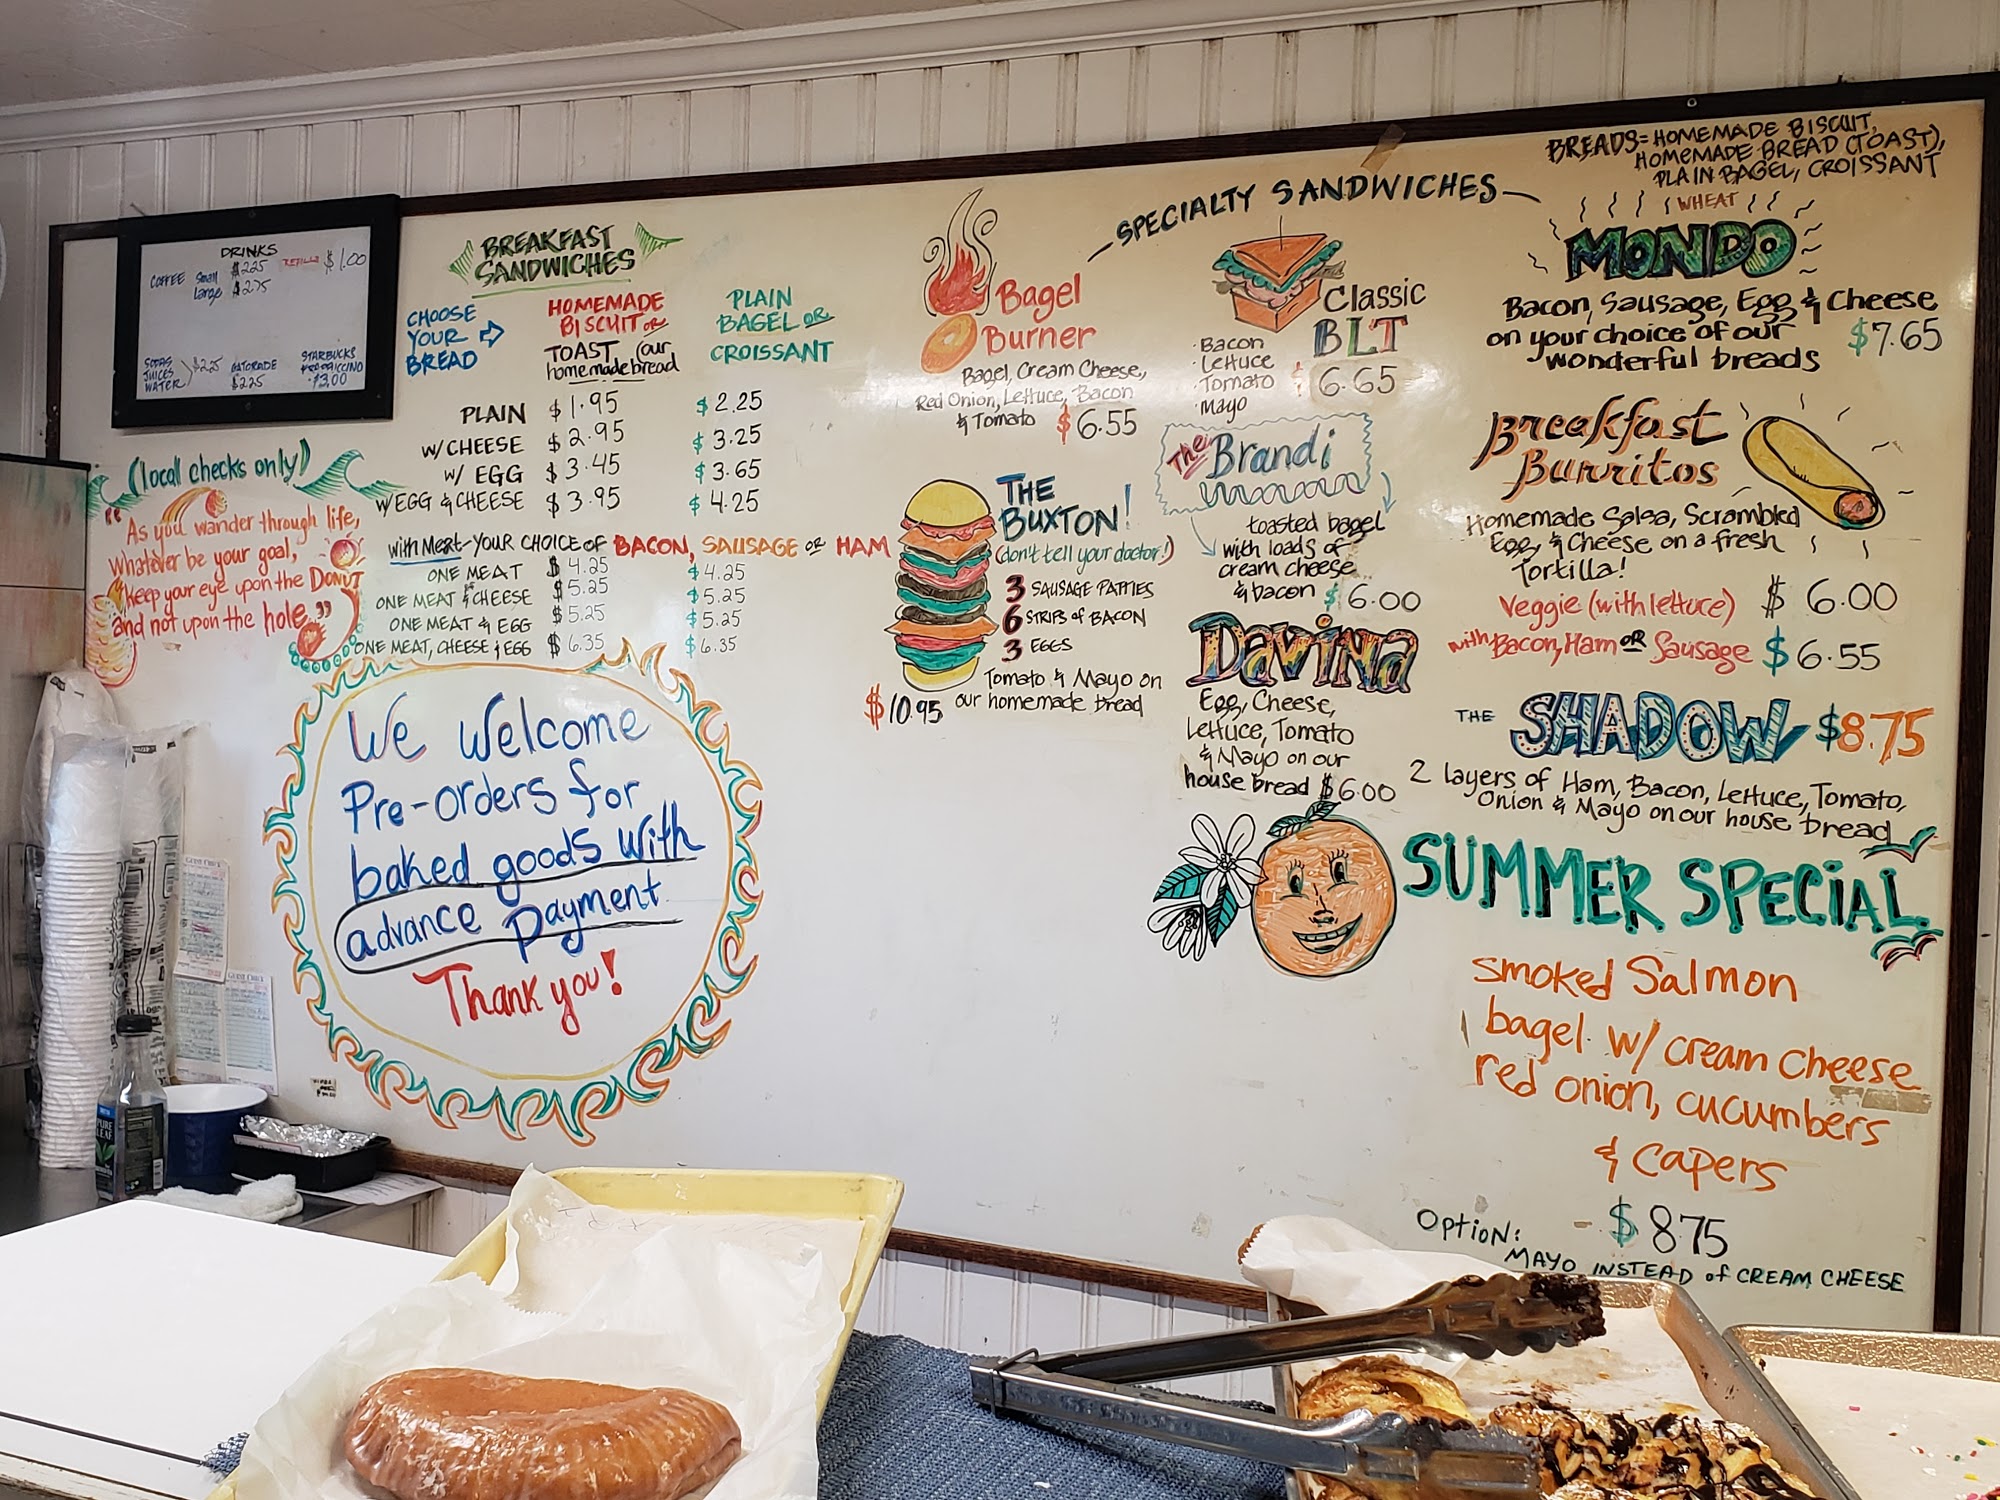 DRINKS
COFFEE Small $2.25 REFILLS $1.00
Large $2.75
SODAS
JUICES
WATER
$2.25
GATORADE
$2.25
STARBUCKS
FRAPPACCINO
$3.00
(local checks only)
"As you wander through life,
Whatever be your goal,
keep your eye upon the DONUT
and not upon the hole."
BREAKFAST
SANDWICHES
CHOOSE
YOUR
BREAD
HOMEMADE
BISCUIT OR
TOAST (our
homemade bread
PLAIN
BAGEL OR
CROISSANT
PLAIN $1.95 $2.25
W/CHEESE $2.95 $3.25
W/ EGG $3.45 $3.65
W/EGG & CHEESE $3.95 $4.25
with Meat - YOUR CHOICE OF BACON, SAUSAGE OR HAM
ONE MEAT $4.25 $4.25
ONE MEAT & CHEESE $5.25 $5.25
ONE MEAT & EGG $5.25 $5.25
ONE MEAT, CHEESE & EGG $6.35 $6.35
We Welcome
Pre-orders for
baked goods with
advance payment
Thank you!
SPECIALTY SANDWICHES
Bagel
Burner
Bagel, Cream Cheese,
Red Onion, Lettuce, Bacon
& Tomato $6.55
THE
BUXTON!
(don't tell your doctor!)
3 SAUSAGE PATTIES
6 STRIPS of BACON
3 EGGS
Tomato & Mayo on
our homemade bread
$10.95
Classic
BLT
· Bacon
· Lettuce
· Tomato
· Mayo
$6.65
The Brandi
toasted bagel
with loads of
cream cheese
& bacon $6.00
Davina
Egg, Cheese,
Lettuce, Tomato
& Mayo on our
house bread $6.00
BREADS = HOMEMADE BISCUIT,
HOMEMADE BREAD (TOAST),
PLAIN BAGEL, CROISSANT
WHEAT
MONDO
Bacon, Sausage, Egg & Cheese
on your choice of our
wonderful breads
$7.65
Breakfast
Burritos
Homemade Salsa, Scrambled
Egg, & Cheese on a fresh
Tortilla!
Veggie (with lettuce) $6.00
with Bacon, Ham OR Sausage $6.55
THE SHADOW $8.75
2 layers of Ham, Bacon, Lettuce, Tomato,
Onion & Mayo on our house bread
SUMMER SPECIAL
Smoked Salmon
bagel w/ cream cheese
red onion, cucumbers
& capers
$8.75
OPTION:
MAYO INSTEAD of CREAM CHEESE
GUEST CHECK
GUEST CHECK
PURE
LEAF